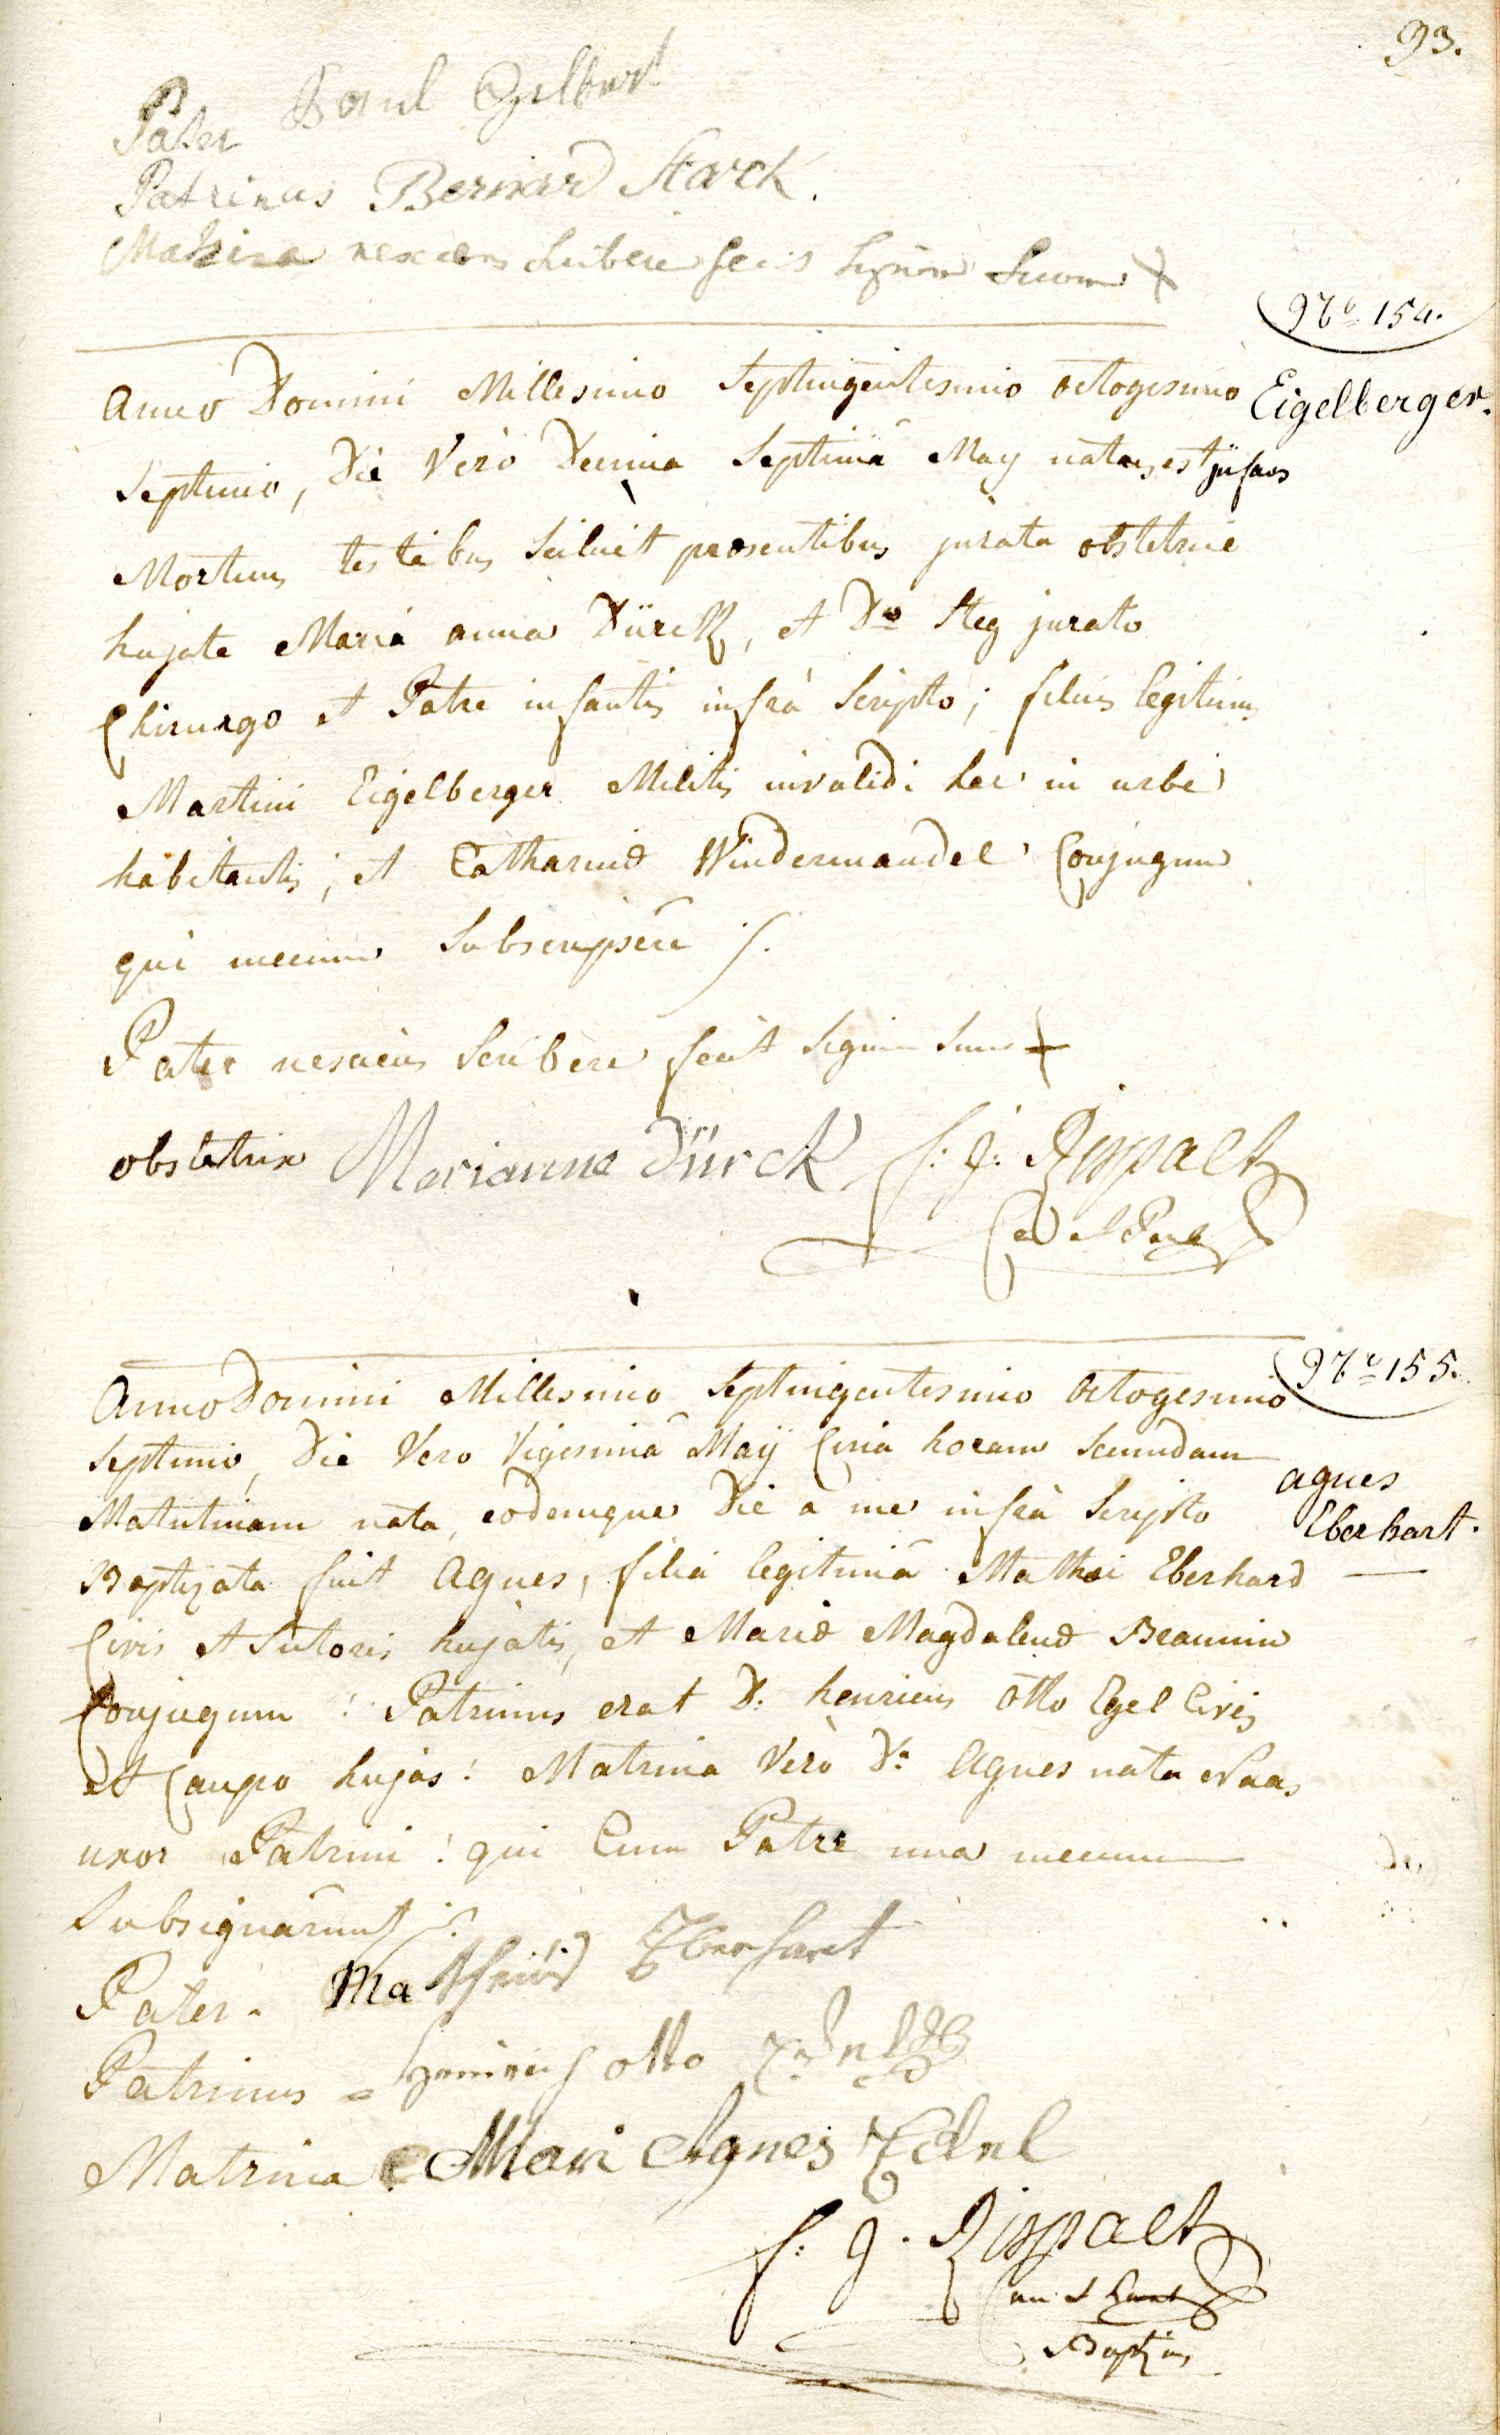 93.
Pater Paul Gilbert
Patrinus Bernard Starck.
Matrina nesciens scribere fecit signum suum +
No 154.
Eigelberger.
Anno Domini Millesimo Septingentesimo octogesimo
Septimo, Die Verò Decima Septimâ May natus est infans
Mortuus testibus scilicet praesentibus jurata obstetrice
hujate Mariâ anna Dürck, et Do Steg jurato
Chirurgo et Patre infantis infrà Scripto; filius legitimus
Martini Eigelberger Militis invalidi hec in urbe
habitantis; et Catharinæ Windermandel Conjugum
qui mecum Subscripsêre ./.
Pater nesciens Scribere fecit Signum Suum +
obstetrix Marianna Dürck f: J: Rispalt
Can S Petri
No 155.
agnes
Eberhart.
Anno Domini Millesimo Septingentesimo Octogesimo
Septimo, Die Vero Vigesimâ Maÿ Circa horam Secundam
Matutinam nata, eodemque Die a me infrà Scripto
Baptizata fuit Agnes, filia legitimâ Mathæi Eberhard
Civis et Sutoris hujatis, et Mariæ Magdalenæ Beaumin
Conjugum : Patrinus erat D: henricus Otto Egel Civis
et Caupo hujas : Matrina Verò Da Agnes nata Naas
uxor Patrini : qui Cum Patre una mecum
Subsignârunt ./.
Pater. Matheus Eberhart
Patrinus = Heinrich otto
Matrina Mari Agnes Eckel
f: J. Rispalt
Can S
Baptizans